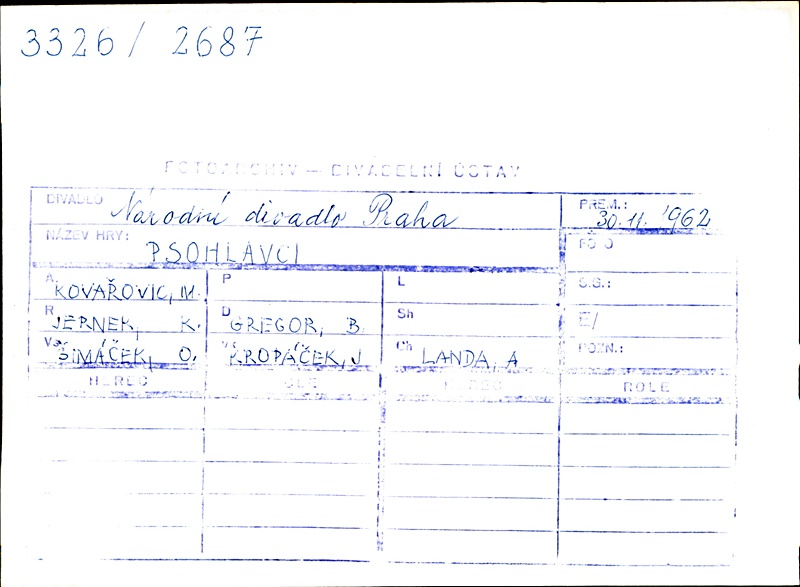 3326/ 2687
FOTOARCHIV — DIVADELNÍ ÚSTAV
DIVADLO Národní divadlo Praha PREM.: 30.11. 1962
NÁZEV HRY: PSOHLAVCI FOTO
A KOVAŘOVIC, M. P L S.G.:
R JERNEK, K. D GREGOR, B. Sh E/
ŠIMÁČEK, O. KROPÁČEK, J Ch LANDA, A POZN.:
HEREC ROLE HEREC ROLE